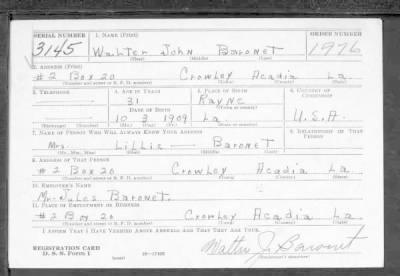 SERIAL NUMBER 1. NAME (Print) ORDER NUMBER
3145 Walter John Baronet 1976
(First) (Middle) (Last)
2. ADDRESS (Print)
#2 Box 20 Crowley Acadia La.
(Number and street or R. F. D. number) (Town) (County) (State)
3. TELEPHONE 4. AGE IN YEARS 5. PLACE OF BIRTH 6. COUNTRY OF CITIZENSHIP
31 Rayne
DATE OF BIRTH (Town or county)
10 3 1909 La U.S.A.
(Exchange) (Number) (Mo.) (Day) (Yr.) (State or country)
7. NAME OF PERSON WHO WILL ALWAYS KNOW YOUR ADDRESS 8. RELATIONSHIP OF THAT PERSON
Mrs. Lillie — Baronet
(Mr., Mrs., Miss) (First) (Middle) (Last)
9. ADDRESS OF THAT PERSON
#2 Box 20 Crowley Acadia La
(Number and street or R. F. D. number) (Town) (County) (State)
10. EMPLOYER'S NAME
Mr. Jules Baronet.
11. PLACE OF EMPLOYMENT OR BUSINESS
#2 Box 20 Crowley Acadia La
(Number and street or R. F. D. number) (Town) (County) (State)
I AFFIRM THAT I HAVE VERIFIED ABOVE ANSWERS AND THAT THEY ARE TRUE.
REGISTRATION CARD
D. S. S. Form 1 (over) Walter J. Baronet
(Registrant's signature)